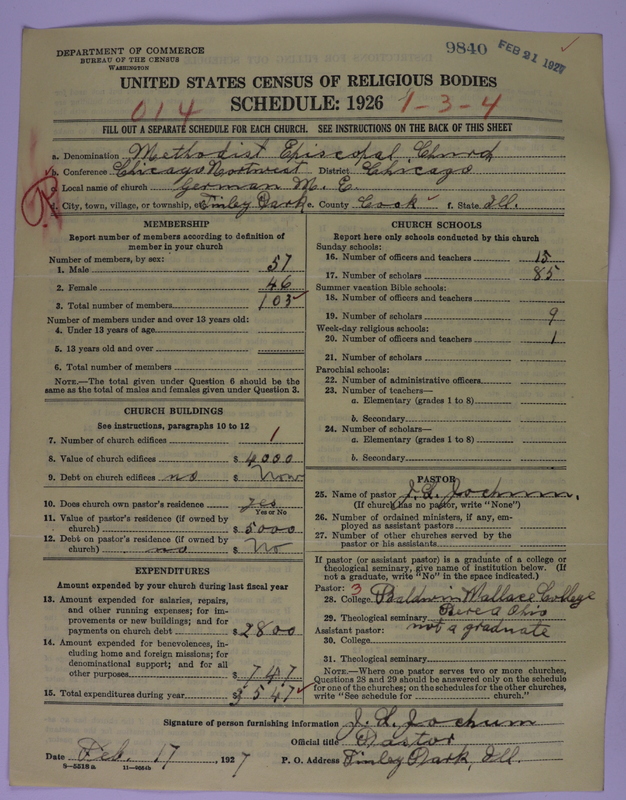 DEPARTMENT OF COMMERCE
BUREAU OF THE CENSUS
WASHINGTON
9840 FEB 21 1927
UNITED STATES CENSUS OF RELIGIOUS BODIES
SCHEDULE: 1926
014 1-3-4
FILL OUT A SEPARATE SCHEDULE FOR EACH CHURCH. SEE INSTRUCTIONS ON THE BACK OF THIS SHEET
a. Denomination Methodist Episcopal Church
b. Conference Chicago Northwest District Chicago
c. Local name of church German M. E.
d. City, town, village, or township, etc. Tinley Park e. County Cook f. State Ill.
MEMBERSHIP
Report number of members according to definition of
member in your church
Number of members, by sex:
1. Male 57
2. Female 46
3. Total number of members 103
Number of members under and over 13 years old:
4. Under 13 years of age
5. 13 years old and over
6. Total number of members
NOTE.—The total given under Question 6 should be the
same as the total of males and females given under Question 3.
CHURCH BUILDINGS
See instructions, paragraphs 10 to 12
7. Number of church edifices 1
8. Value of church edifices $ 4000
9. Debt on church edifices no $ None
10. Does church own pastor's residence yes
Yes or No
11. Value of pastor's residence (if owned by
church) $ 5000
12. Debt on pastor's residence (if owned by
church) no $ No
EXPENDITURES
Amount expended by your church during last fiscal year
13. Amount expended for salaries, repairs,
and other running expenses; for im-
provements or new buildings; and for
payments on church debt $ 2800
14. Amount expended for benevolences, in-
cluding home and foreign missions; for
denominational support; and for all
other purposes $ 747
15. Total expenditures during year $ 3547
CHURCH SCHOOLS
Report here only schools conducted by this church
Sunday schools:
16. Number of officers and teachers 15
17. Number of scholars 85
Summer vacation Bible schools:
18. Number of officers and teachers
19. Number of scholars 9
Week-day religious schools:
20. Number of officers and teachers 1
21. Number of scholars
Parochial schools:
22. Number of administrative officers
23. Number of teachers—
a. Elementary (grades 1 to 8)
b. Secondary
24. Number of scholars—
a. Elementary (grades 1 to 8)
b. Secondary
PASTOR
25. Name of pastor J. L. Jochum.
(If church has no pastor, write "None")
26. Number of ordained ministers, if any, em-
ployed as assistant pastors
27. Number of other churches served by the
pastor or his assistants
If pastor (or assistant pastor) is a graduate of a college or
theological seminary, give name of institution below. (If
not a graduate, write "No" in the space indicated.)
Pastor: 3
28. College Baldwin Wallace College
Berea Ohio
29. Theological seminary
not a graduate
Assistant pastor:
30. College
31. Theological seminary
NOTE.—Where one pastor serves two or more churches,
Questions 28 and 29 should be answered only on the schedule
for one of the churches; on the schedules for the other churches,
write "See schedule for church."
Signature of person furnishing information J. L. Jochum
Official title Pastor
Date Feb. 17, 1927 P. O. Address Tinley Park, Ill.
8—5518 a 11—9664b